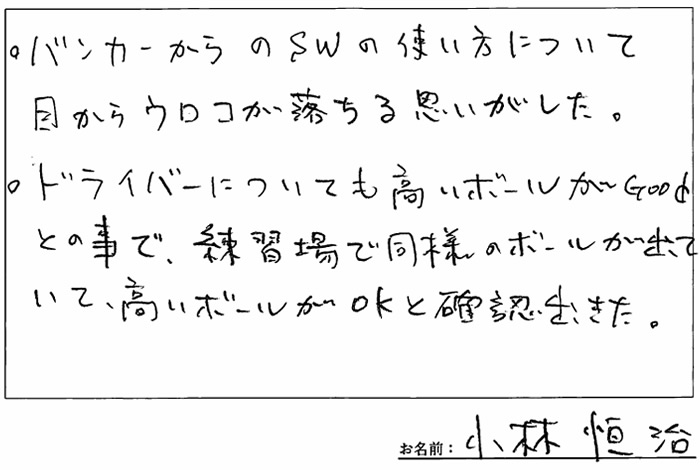 。バンカーからのSWの使い方について
目からウロコが落ちる思いがした。
。ドライバーについても高いボールがGood
との事で、練習場で同様のボールが出て
いて、高いボールがOKと確認出きた。
お名前：小林 恒治